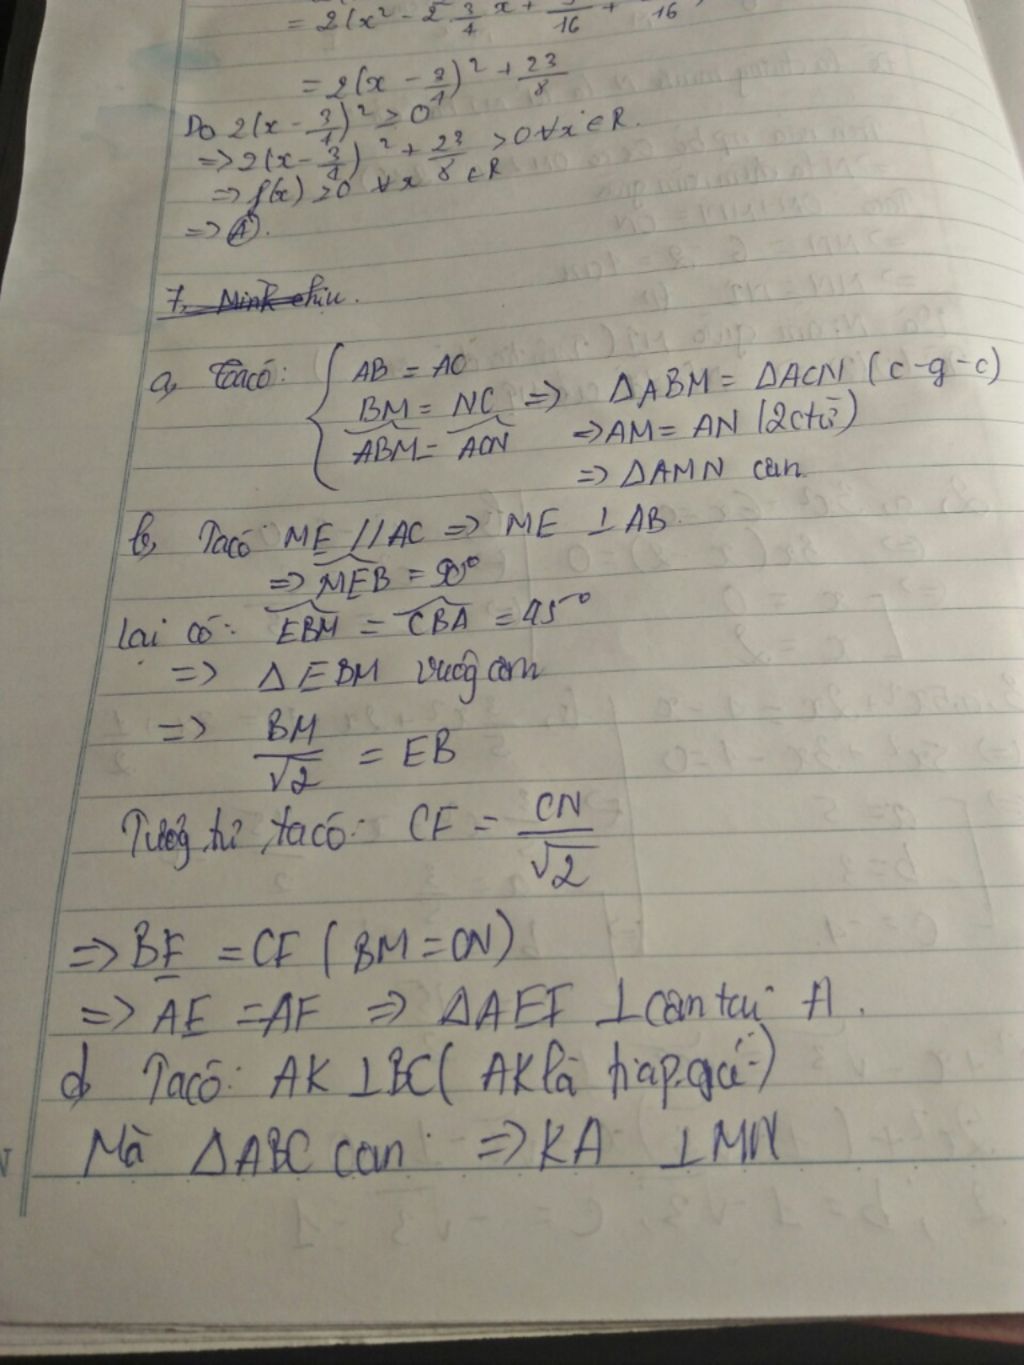 = 2(x² - 2 3/4 x +
= 2(x - 3/4)² + 23/8
Do 2(x - 3/4)² ≥ 0
=> 2(x - 3/4)² + 23/8 > 0 ∀x ∈ R.
=> f(x) > 0 ∀x ∈ R
=> Ⓐ.
7,
a, Ta có: { AB = AC
BM = NC => ΔABM = ΔACN (c-g-c)
ABM = ACN => AM = AN (2ctứ)
=> ΔAMN cân
b, Ta có ME // AC => ME ⊥ AB
=> MEB = 90°
lại có: EBM = CBA = 45°
=> ΔEBM vuông cân
=> BM/√2 = EB
Tương tự, ta có: CF = CN/√2
=> BE = CF (BM = CN)
=> AE = AF => ΔAEF ⊥ cân tại A.
d, Ta có: AK ⊥ BC (AK là
Mà ΔABC cân => KA ⊥ MN